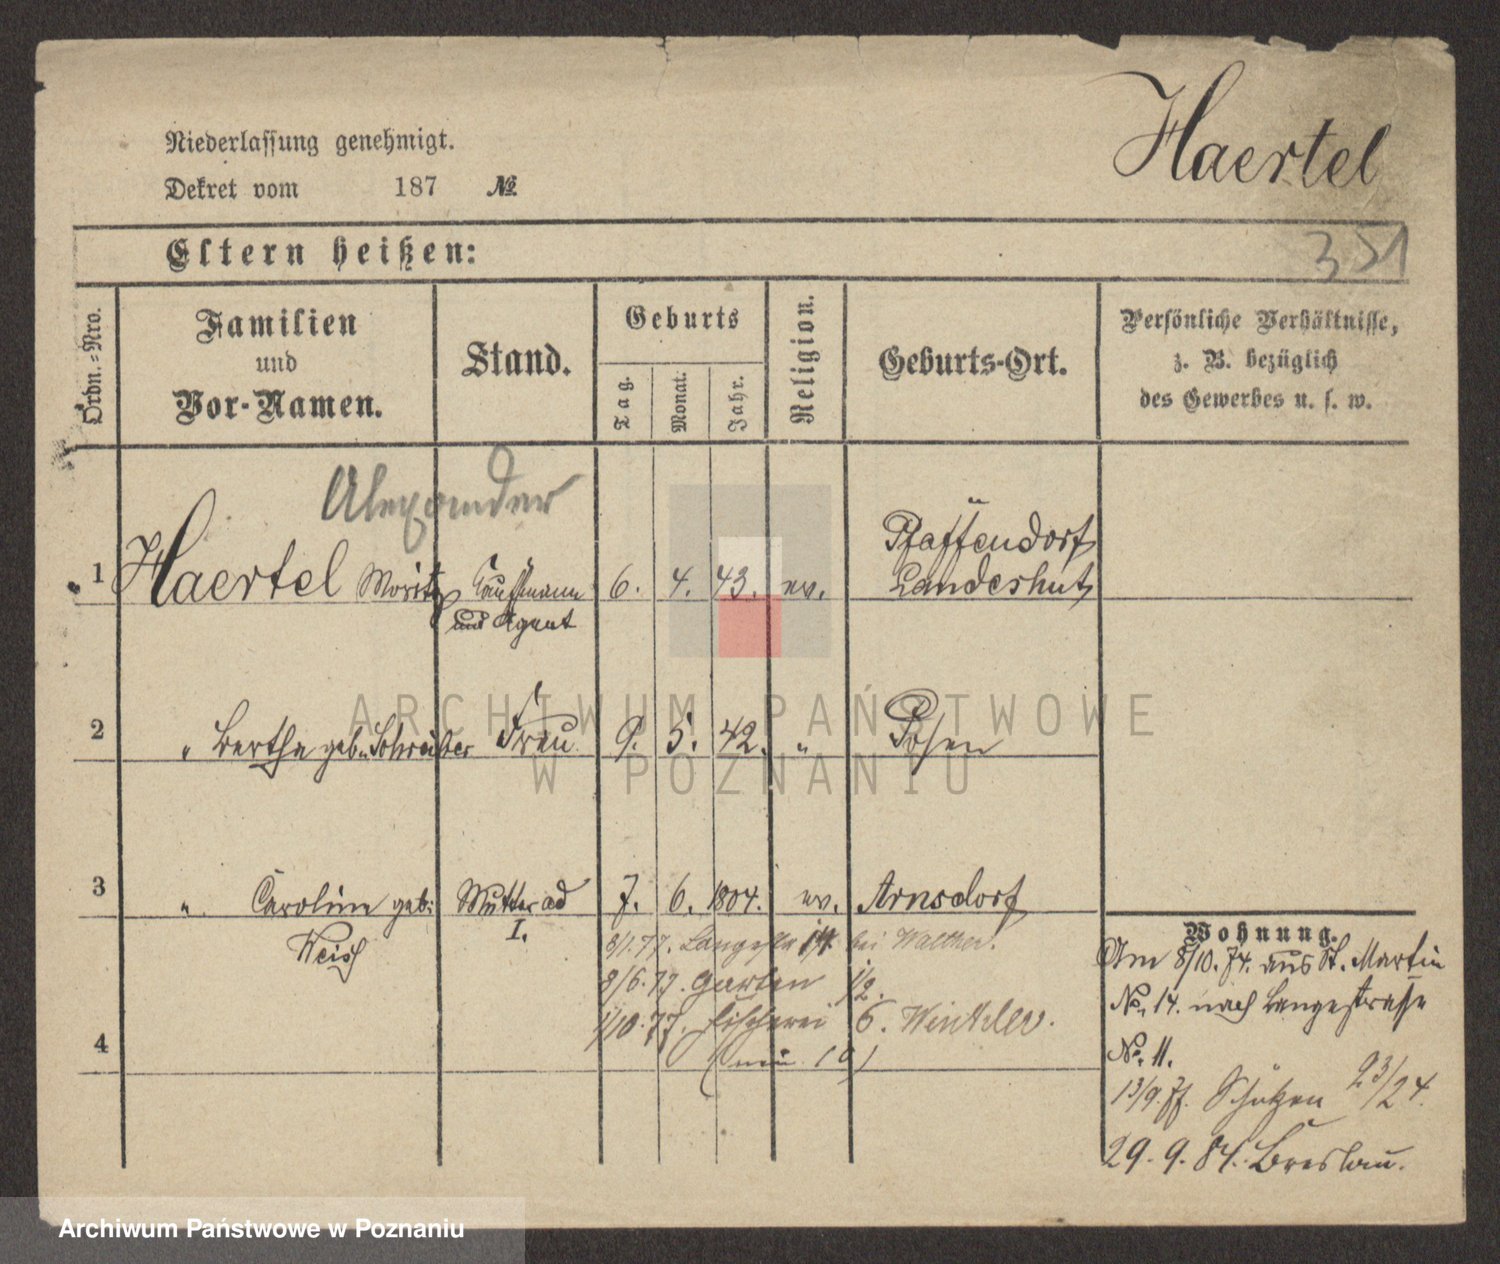 Haertel
Niederlassung genehmigt.
Dekret vom 187 №
Eltern heißen:
351
Ordn.-Nro.
Familien
und
Vor-Namen.
Stand.
Geburts
Tag.
Monat.
Jahr.
Religion.
Geburts-Ort.
Persönliche Verhältnisse,
z. B. bezüglich
des Gewerbes u. s. w.
Alexander
1 Haertel Moritz Kaufmann 6. 4. 43. ev. Pfaffendorf
und Agent Landeshut
2 " Bertha geb. Schreiber Frau 9. 5. 42. " Posen
3 " Caroline geb. Mutter ad 7. 6. 1804. ev. Arnsdorf
Weiss I.
8/1. 77. Langestr. bei Walther.
9/6. 77. Garten 1/2.
1/10. 77. Fischerei 6. Winkler.
4
Wohnung.
Am 8/10. 74. aus St. Martin
No. 14. nach Langestrasse
No. 11.
13/9. Schützen 23/24.
29. 9. 84. Breslau.
ARCHIWUM PAŃSTWOWE
W POZNANIU
Archiwum Państwowe w Poznaniu